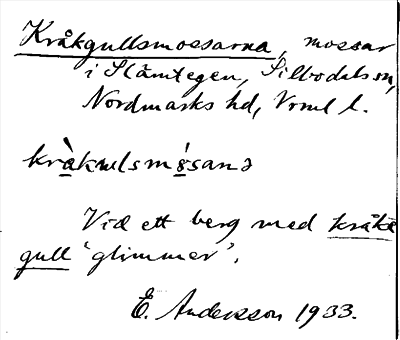 Kråkgullsmossarna, mossar
i Slämtegen, Silbodals sn,
Nordmarks hd, Vrml l.
kràkulsmósanə
Vid ett berg med kråke
gull 'glimmer'.
E. Andersson 1933.